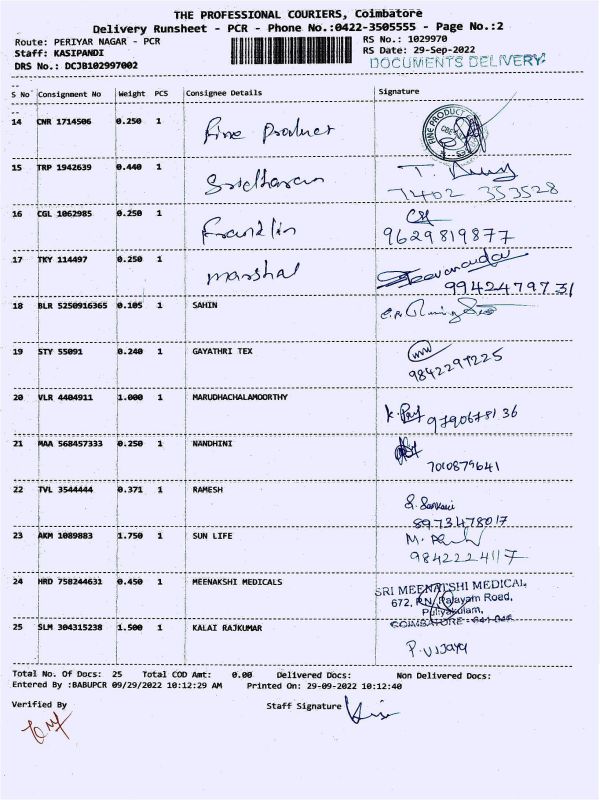 THE PROFESSIONAL COURIERS, Coimbatore
Delivery Runsheet - PCR - Phone No.:0422-3505555 - Page No.:2
Route: PERIYAR NAGAR - PCR RS No.: 1029970
Staff: KASIPANDI RS Date: 29-Sep-2022
DRS No.: DCJB102997002 DOCUMENTS DELIVERY
S No Consignment No Weight PCS Consignee Details Signature
14 CNR 1714506 0.250 1 Fine Product FINE PRODUCT
15 TRP 1942639 0.440 1 Sridharan T.
7402 353528
16 CGL 1062985 0.250 1 Franklin
9629819877
17 TKY 114497 0.250 1 Marshal
9942479731
18 BLR 5250916365 0.105 1 SAHIN
19 STY 55091 0.240 1 GAYATHRI TEX
9842299225
20 VLR 4404911 1.000 1 MARUDHACHALAMOORTHY
21 MAA 568457333 0.250 1 NANDHINI
7010879641
22 TVL 3544444 0.371 1 RAMESH
8973478017
23 AKM 1089883 1.750 1 SUN LIFE M.
9842224117
24 HRD 758244631 0.450 1 MEENAKSHI MEDICALS SRI MEENATSHI MEDICAL,
672, P.N. Palayam Road,
Puliyakulam,
COIMBATORE - 641 045
25 SLM 304315238 1.500 1 KALAI RAJKUMAR
P. Vijaya
Total No. Of Docs: 25 Total COD Amt: 0.00 Delivered Docs: Non Delivered Docs:
Entered By :BABUPCR 09/29/2022 10:12:29 AM Printed On: 29-09-2022 10:12:40
Verified By Staff Signature